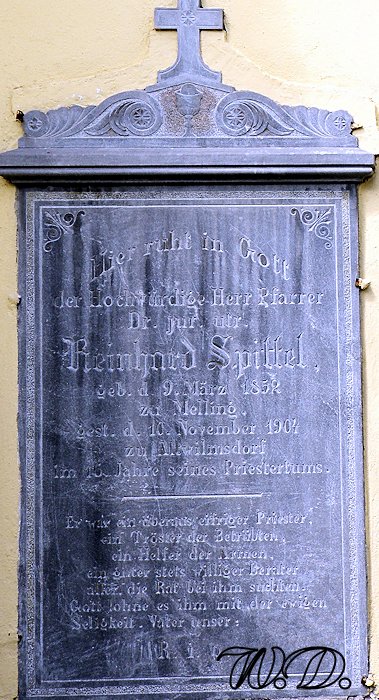 Hier ruht in Gott
der Hochwürdige Herr Pfarrer
Dr. jur. utr.
Reinhard Spittel,
geb. d. 9. März 1852
zu Melling,
gest. d. 10. November 1904
zu Altwilmsdorf
im 15. Jahre seines Priestertums.
Er war ein überaus eifriger Priester,
ein Tröster der Betrübten,
ein Helfer der Armen,
ein guter stets williger Berater
aller, die Rat bei ihm suchten.
Gott lohne es ihm mit der ewigen
Seligkeit. Vater unser.
R. i.
W.D.